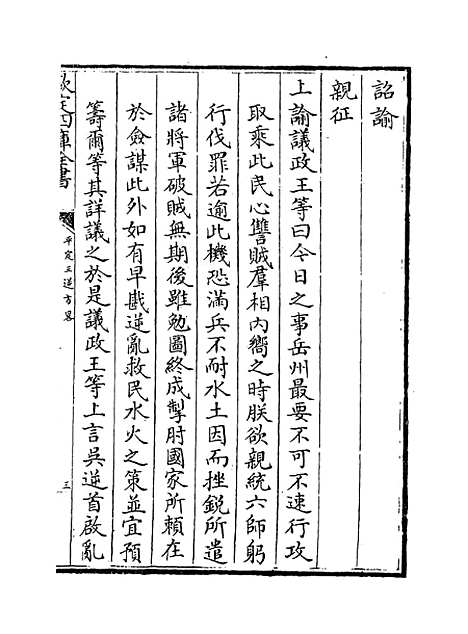 詔諭
親征
上諭議政王等曰今日之事岳州最要不可不速行攻
取乘此民心讐賊羣相内嚮之時朕欲親統六師躬
行伐罪若逾此機恐滿兵不耐水土因而挫鋭所遣
諸將軍破賊無期後雖勉圖終成掣肘國家所頼在
於僉謀此外如有早戡逆亂救民水火之策並宜預
籌爾等其詳議之於是議政王等上言吳逆首啟亂
欽定四庫全書
平定三逆方略
三